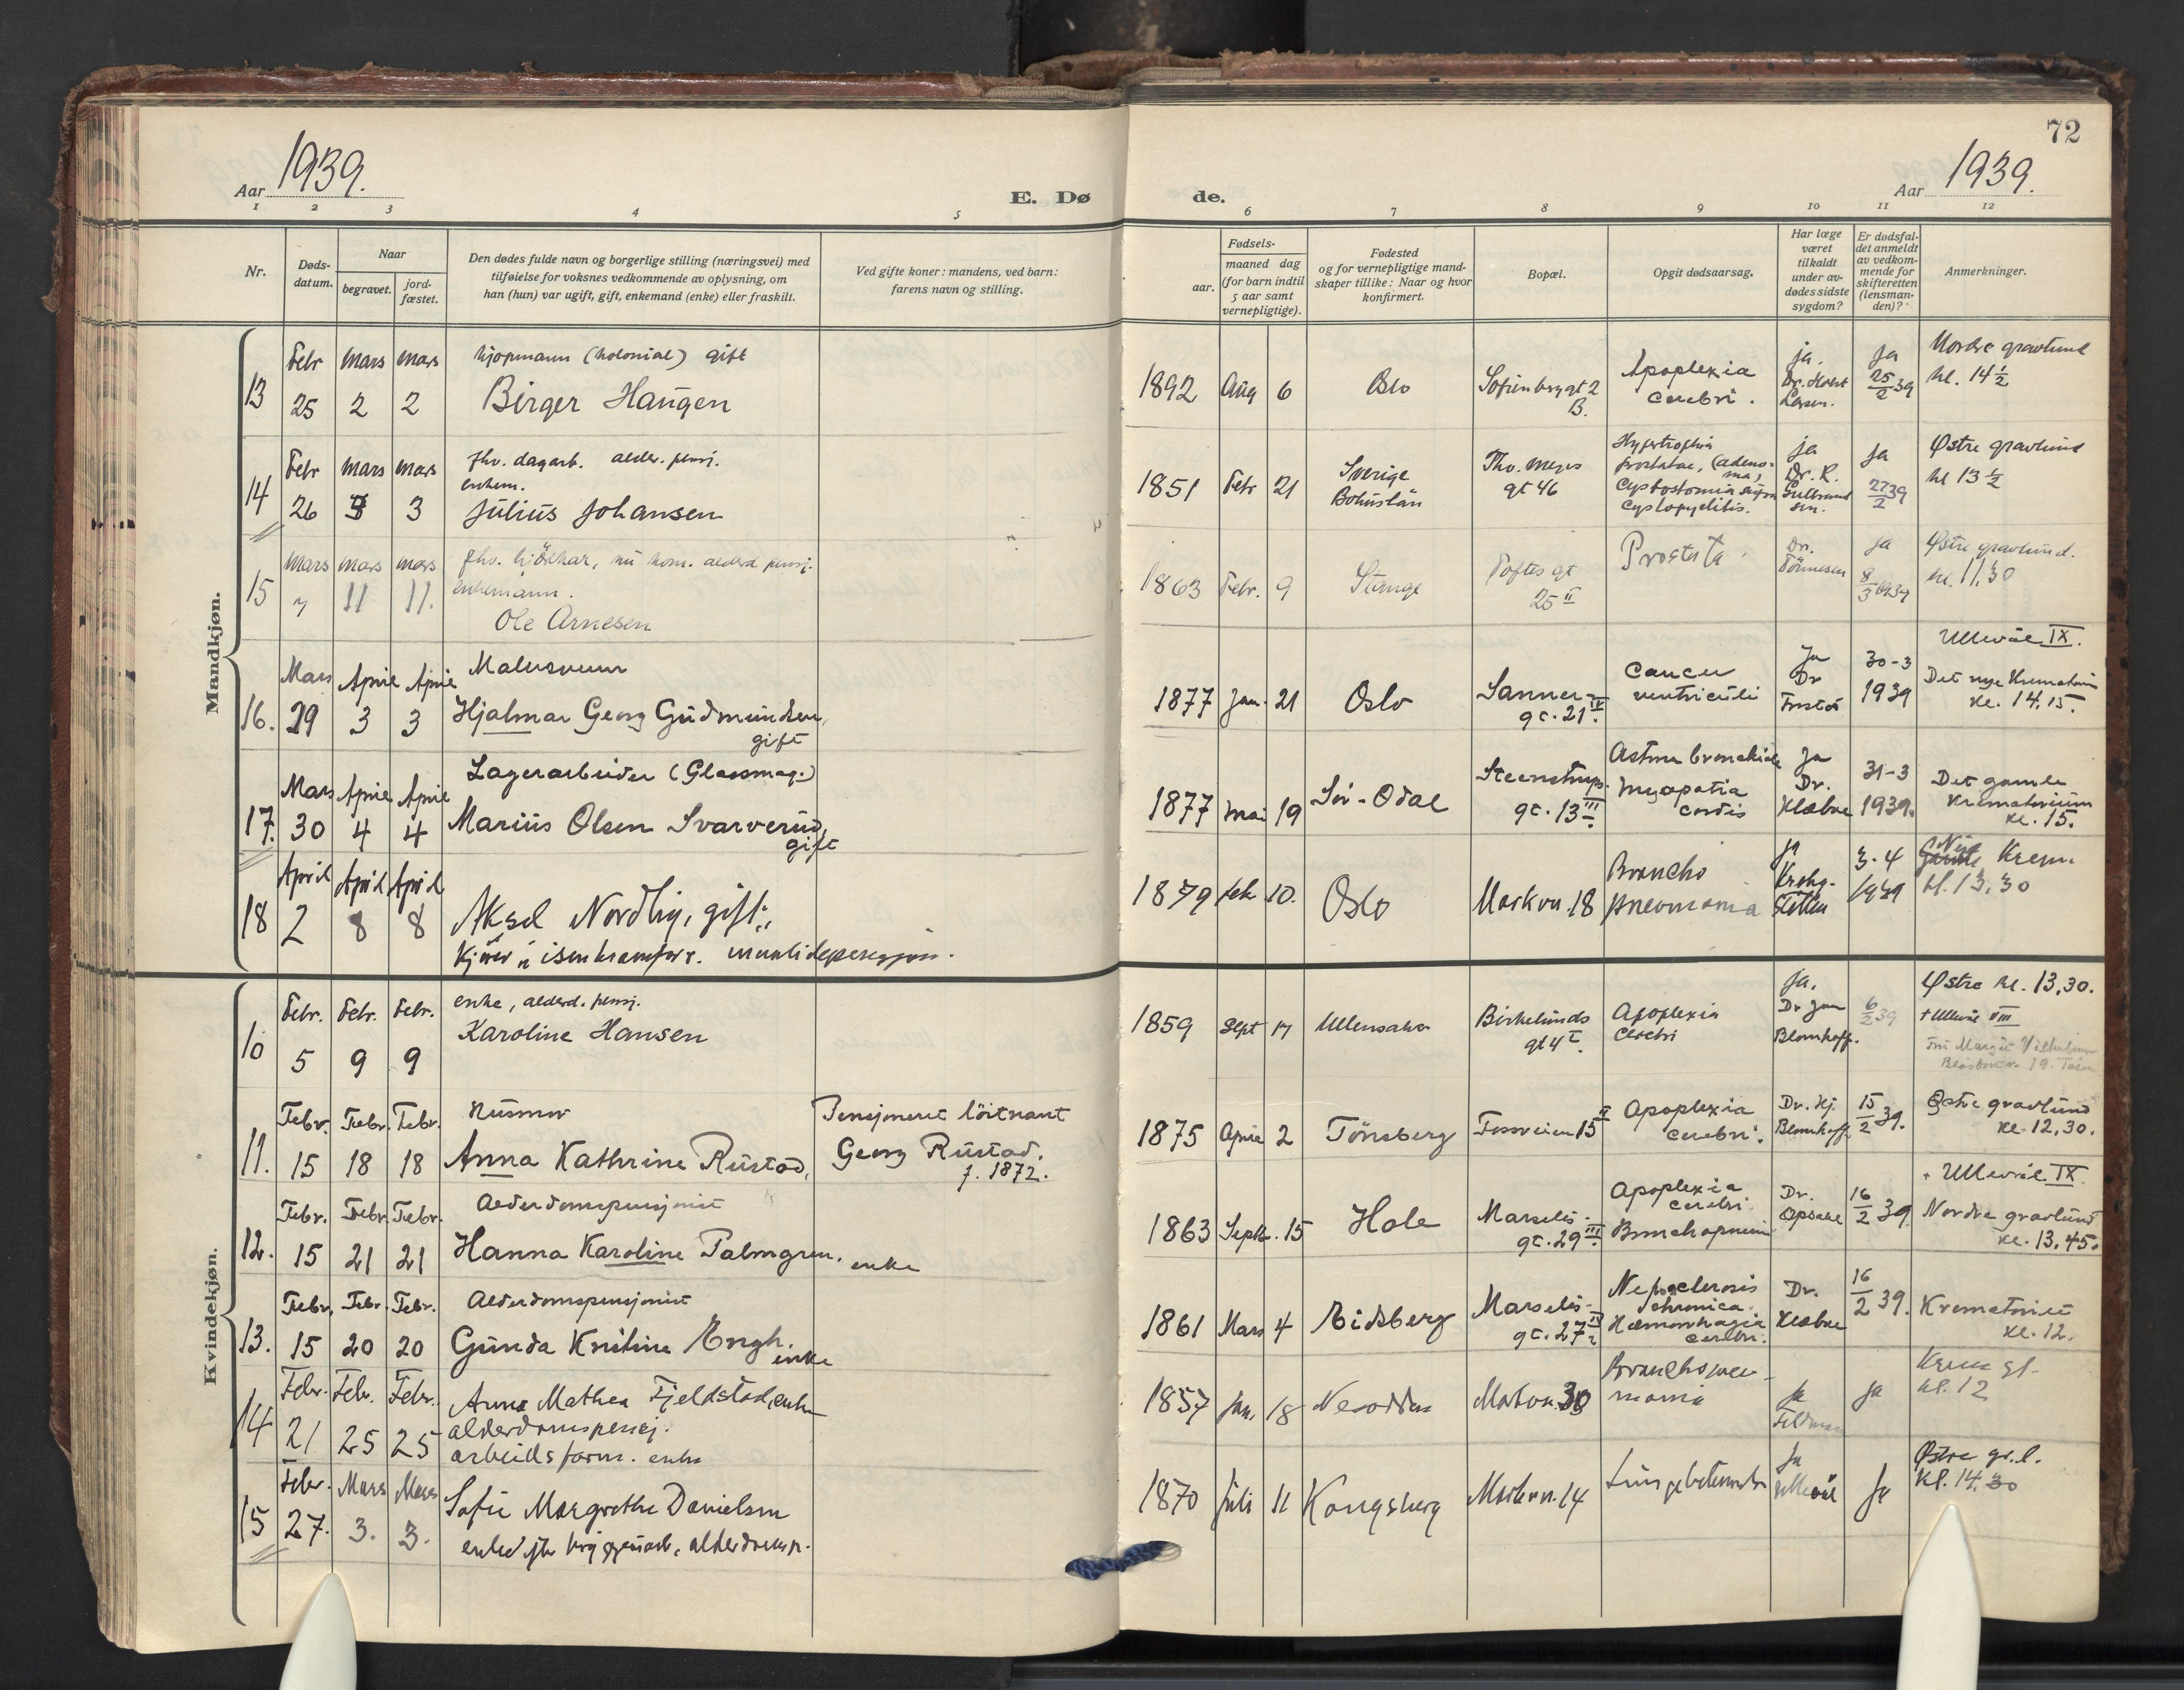 72
Aar 1939.
E. Dø de.
Aar 1939.
1 2 3 4 5 6 7 8 9 10 11 12
Nr.
Døds-
datum.
Naar
begravet.
jord-
fæstet.
Den dødes fulde navn og borgerlige stilling (næringsvei) med
tilføielse for voksnes vedkommende av oplysning, om
han (hun) var ugift, gift, enkemand (enke) eller fraskilt.
Ved gifte koner: mandens, ved barn:
farens navn og stilling.
Fødsels-
aar.
maaned dag
(for barn indtil
5 aar samt
vernepligtige).
Fødested
og for vernepligtige mand-
skaper tillike: Naar og hvor
konfirmert.
Bopæl.
Opgit dødsaarsag.
Har læge
været
tilkaldt
under av-
dødes sidste
sygdom?
Er dødsfal-
det anmeldt
av vedkom-
mende for
skifteretten
(lensman-
den)?
Anmerkninger.
Mandkjøn.
13
Febr 25
Mars 2
Mars 2
kjøpmann (kolonial) gift
Birger Haugen
1892 Aug 6
Oslo
Sofienbrggt 2
B.
Apoplexia
cerebri.
ja.
Ja
25/2 39
Nordre gravlund
kl. 14 1/2
14
Febr 26
Mars 3
Mars 3
fhv. dagarb. alder. pensj.
enkem.
Julius Johansen
1851 Febr 21
Sverige
Bohuslän
Thv. Meyers
gt 46
Hypertrophia
prostatae, (adeno-
ma)
Cystopyelitis.
ja
Dr. R.
Gulbrand
sen.
Ja
27/2 39
Østre gravlund
kl 13 1/2
15
Mars 7
Mars 11
Mars 11.
enkemann.
Ole Arnesen
1863 Febr. 9
Stange
Toftes gt
25 II
Prostata
Dr.
Tönnesen
Ja
8/3 1939
Østre gravlund.
kl. 11,30
16.
Mars 29
April 3
April 3
Malersvenn
Hjalmar Georg Gudmundsen,
gift
1877 Jan. 21
Oslo
Sanner-
gt. 21 IV.
Cancer
ventriculi
Ja
Dr
30-3
1939
Ullevål IX.
Det nye Krematorium
kl. 14.15.
17.
Mars 30
April 4
April 4
Lagerarbeider (Glassmag.)
Marius Olsen Svarverud,
gift
1877 Mai 19
Sør-Odal
Steenstrups-
gt. 13 III.
Astma bronchiale
Myopatia
cordis
Ja
Dr.
Klæboe
31-3
1939.
Det gamle
Krematorium
kl. 15.
18
April 2
April 8
April 8
Aksel Nordlig, gift;
1879 feb 10.
Oslo
Markvn. 18
Broncho
pneomonia
Ja
3-4
1939
Nye Krem
kl. 13,30
Kvindekjøn.
10
Febr. 5
Febr. 9
Febr. 9
enke, alderd. pensj.
Karoline Hansen
1859 Sept 17
Ullensaker
Birkelunds
gt 4 I.
Apoplexia
cerebri
Ja.
Dr Jan
Blomhoff.
6/2 39
Østre kl. 13,30.
+ Ullevål VIII
11.
Febr. 15
Febr. 18
Febr. 18
Husmor
Anna Kathrine Rustad,
Pensjonert löitnant
Georg Rustad.
f. 1872.
1875 April 2
Tönsberg
Fossveien 15 II
Apoplexia
cerebri.
Dr. Hj.
Blomhoff
15/2 39.
Østre gravlund
kl. 12,30.
12.
Febr. 15
Febr. 21
Febr. 21
Alderdomspensjonist
Hanna Karoline Palmgren. enke
1863 Septbr. 15
Hole
Marselis-
gt. 29 III.
Apoplexia
cerebri.
Bronchopneum
Dr.
Opsahl
16/2 39
+ Ullevål IX
Nordre gravlund
kl. 13,45.
13.
Febr. 15
Febr. 20
Febr. 20
Alderdomspensjonist
Gunda Kristine Engh.
enke
1861 Mars 4
Eidsberg
Marselis-
gt. 27 IV
chronica.
Hæmorrhagia
cerebri.
Dr.
Klæboe
16/2 39.
Krematoriet
kl. 12.
14
Febr. 21
Feb. 25
Febr. 25
Anna Mathea Fjeldstad, enke
alderdomspensj.
arbeidsform. enke
1857 Jan. 18
Nesodden
Markvn. 30
Bronchopneu-
monia
Ja
Ja
kl. 12
15
Febr. 27.
Mars 3.
Mars 3.
Sofie Margrethe Danielsen
1870 Juli 11
Kongsberg
Markvn. 14
Lungebetennelse
Ja
Ullevål
Ja
Østre gr.l.
Kl. 14,30